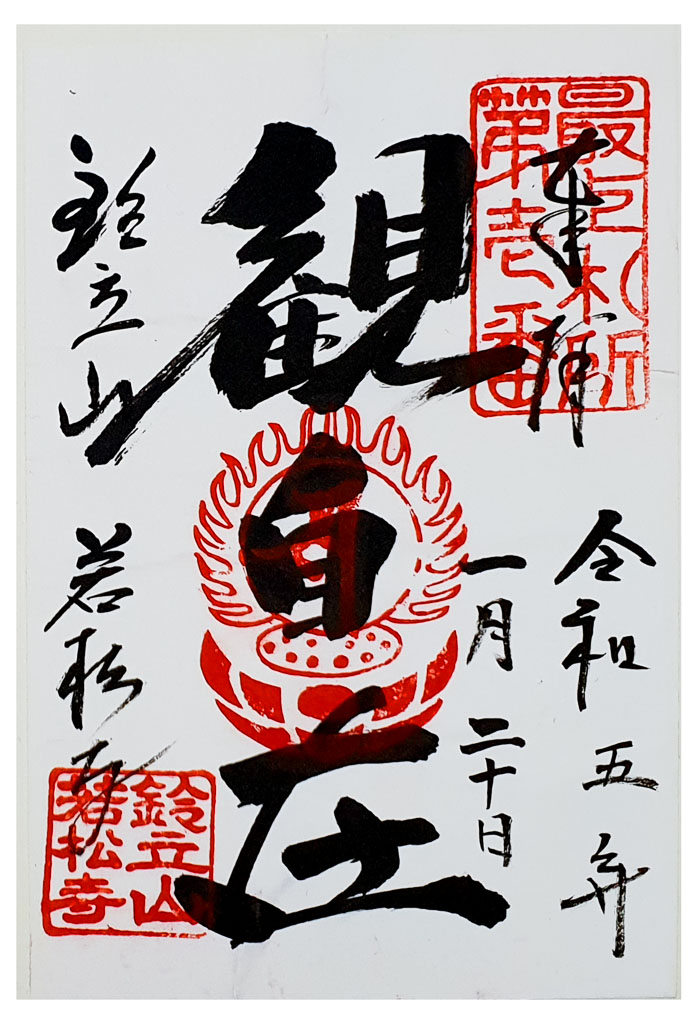 奉拝
最上札所
第壱番
令和五年
一月二十日
観自在
鈴立山
若松寺
鈴立山
若松寺